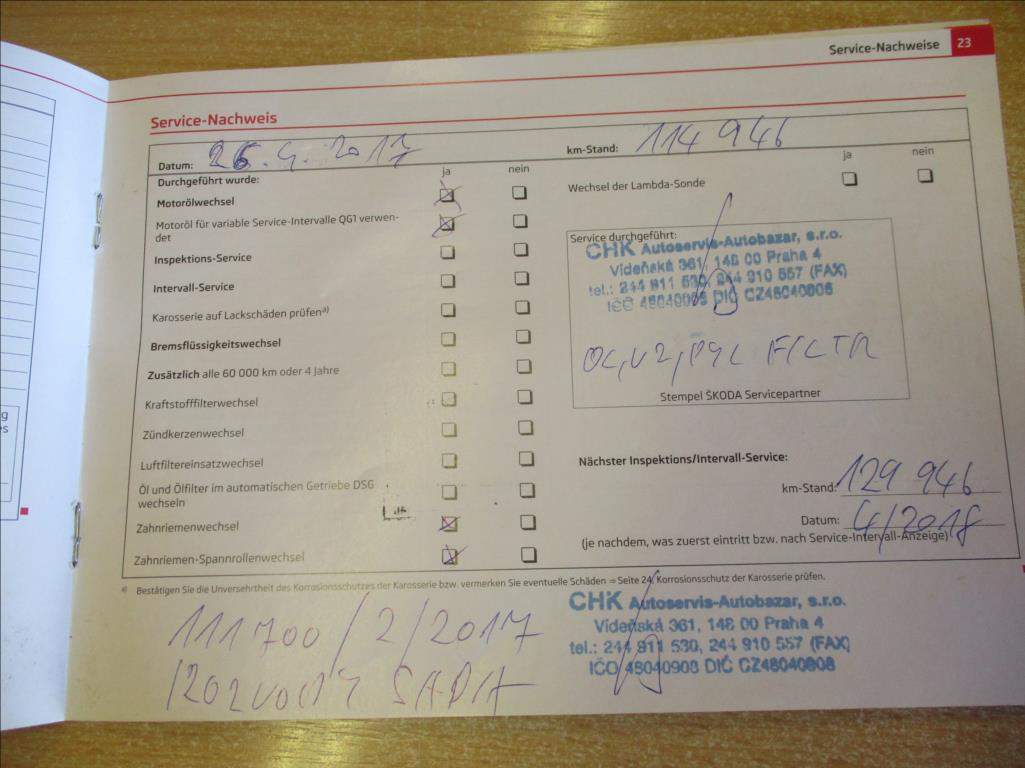 Service-Nachweise 23
Service-Nachweis
Datum: 26.4.2017 km-Stand: 114 946
Durchgeführt wurde: ja nein
Motorölwechsel
Motoröl für variable Service-Intervalle QG1 verwen-
det
Inspektions-Service
Intervall-Service
Karosserie auf Lackschäden prüfen a)
Bremsflüssigkeitswechsel
Zusätzlich alle 60 000 km oder 4 Jahre
Kraftstofffilterwechsel
Zündkerzenwechsel
Luftfiltereinsatzwechsel
Öl und Ölfilter im automatischen Getriebe DSG
wechseln
Zahnriemenwechsel
Zahnriemen-Spannrollenwechsel
ja nein
Wechsel der Lambda-Sonde
Service durchgeführt:
CHK Autoservis-Autobazar, s.r.o.
Vídeňská 361, 148 00 Praha 4
tel.: 244 911 530, 244 910 557 (FAX)
IČO 48040908 DIČ CZ48040908
OL, VZ, PYL FILTR
Stempel ŠKODA Servicepartner
Nächster Inspektions/Intervall-Service:
km-Stand: 129 946
Datum: 4/2018
(je nachdem, was zuerst eintritt bzw. nach Service-Intervall-Anzeige)
a) Bestätigen Sie die Unversehrtheit des Korrosionsschutzes der Karosserie bzw. vermerken Sie eventuelle Schäden ⇒ Seite 24, Korrosionsschutz der Karosserie prüfen.
111700/2/2017
ROZVODOVÝ SADA
CHK Autoservis-Autobazar, s.r.o.
Vídeňská 361, 148 00 Praha 4
tel.: 244 911 530, 244 910 557 (FAX)
IČO 48040908 DIČ CZ48040908